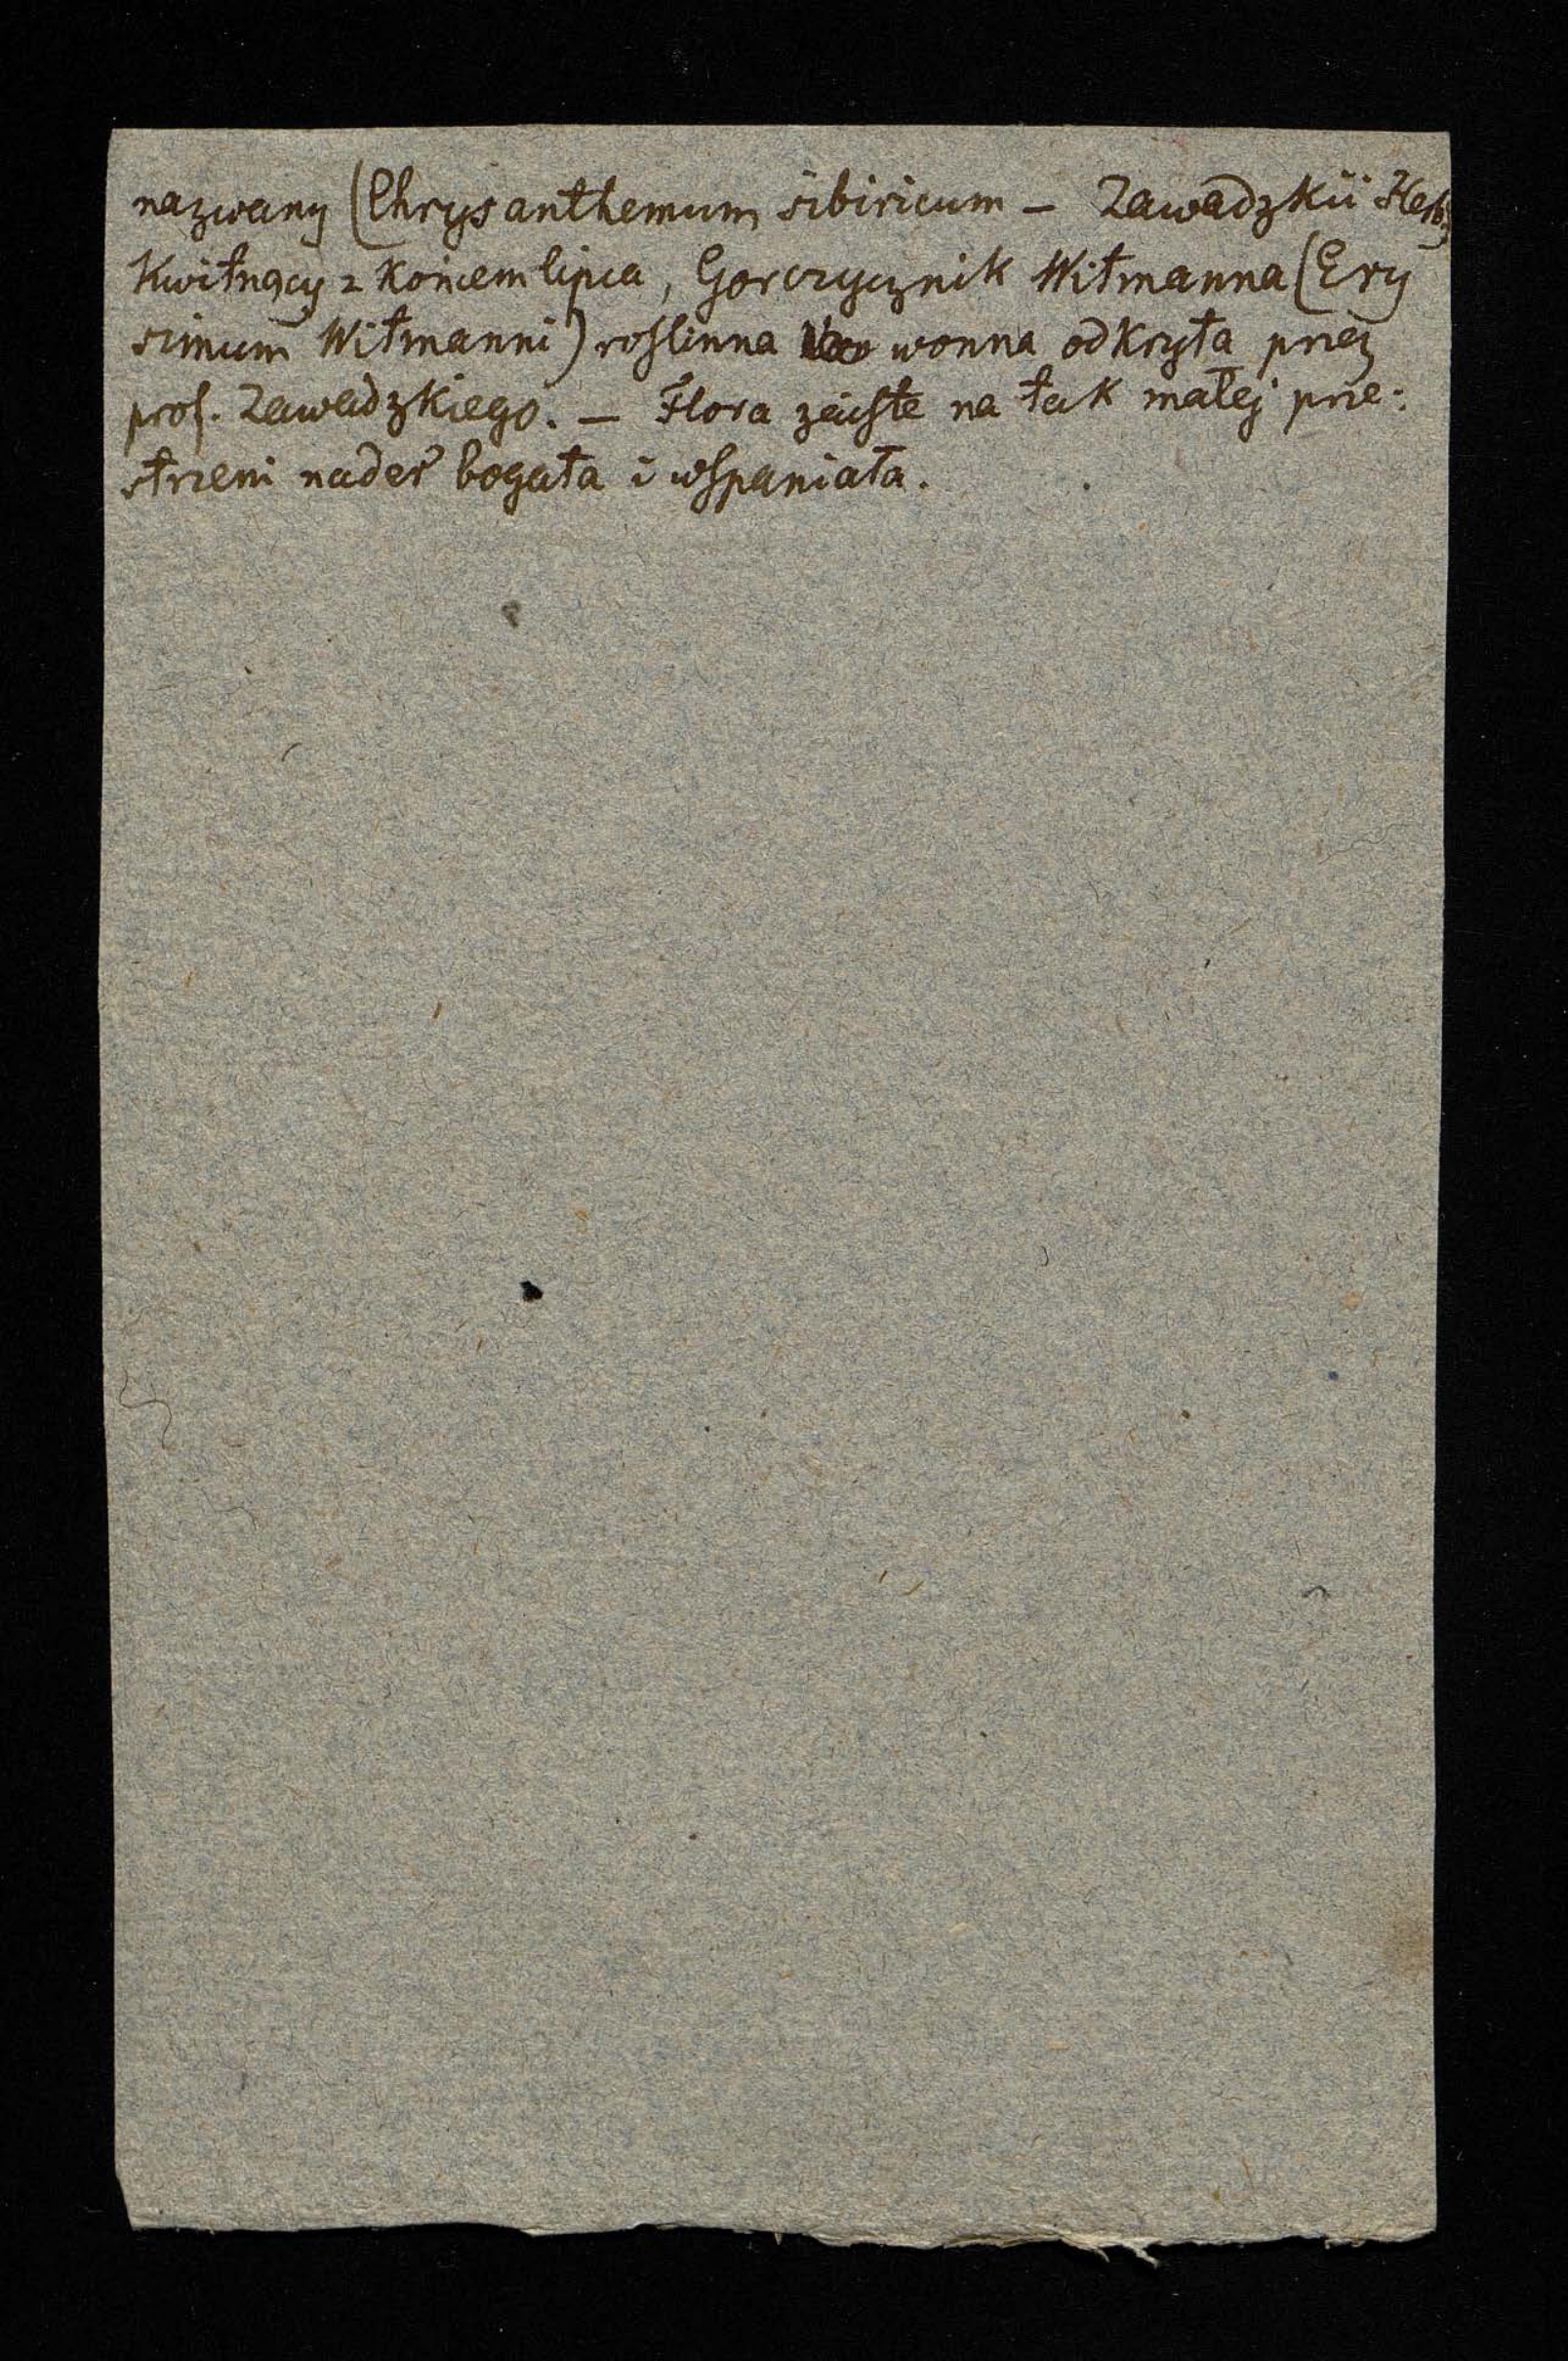 nazwany (Chrysanthemum sibiricum — Zawadzkii Herb;
Kwitnący z końcem lipca, Gorczycznik Witmanna (Ery
simum Witmanni) roslinna wonna odkryta przez
prof. Zawadzkiego. — Flora zaiste na tak małej prze:
strzeni nader bogata i wspaniała.